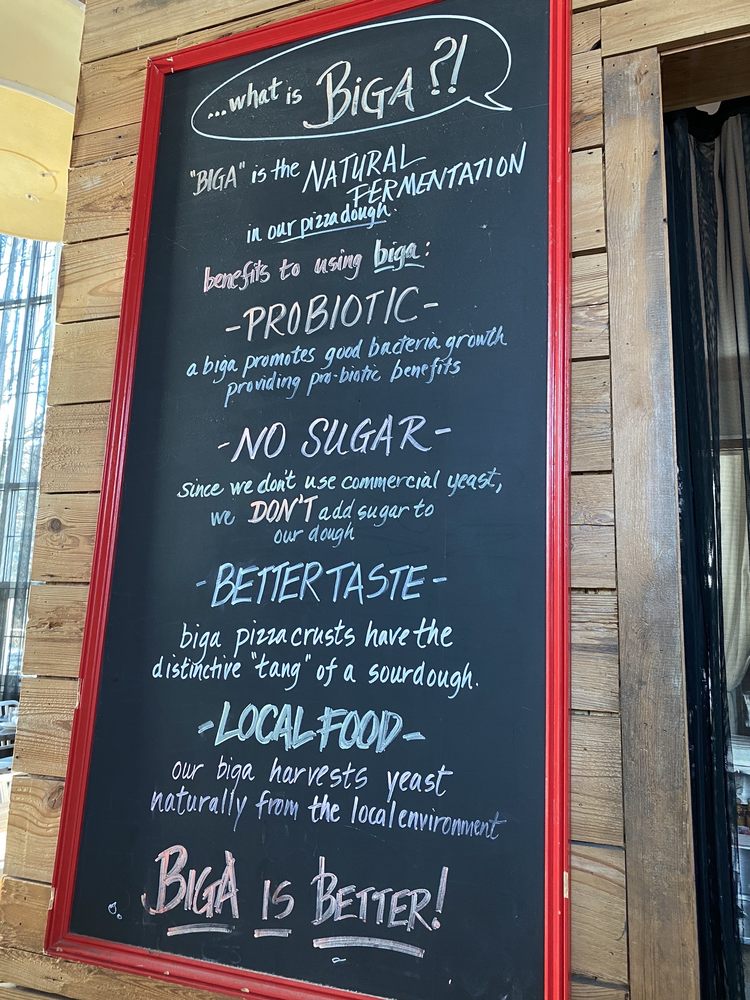 ...what is BIGA?!
"BIGA" is the NATURAL
FERMENTATION
in our pizza dough.
benefits to using biga:
-PROBIOTIC-
a biga promotes good bacteria growth
providing pro-biotic benefits
-NO SUGAR-
since we don't use commercial yeast,
we DON'T add sugar to
our dough
-BETTER TASTE-
biga pizza crusts have the
distinctive "tang" of a sourdough.
-LOCAL FOOD-
our biga harvests yeast
naturally from the local environment
BIGA IS BETTER!